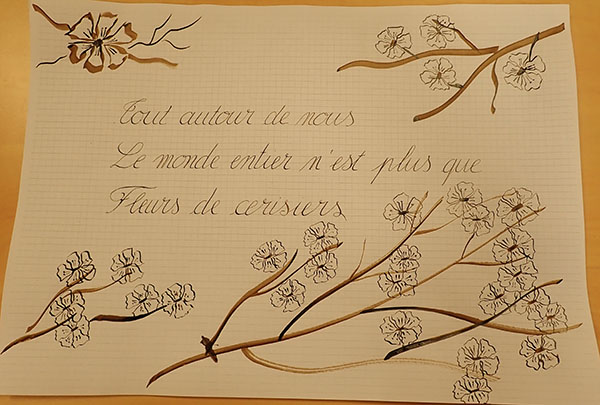 Tout autour de nous
Le monde entier n'est plus que
Fleurs de cerisiers